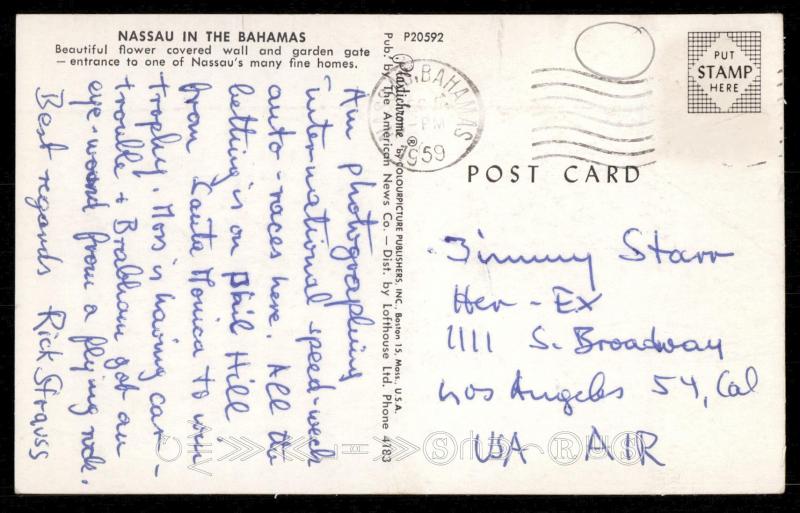 NASSAU IN THE BAHAMAS
Beautiful flower covered wall and garden gate
— entrance to one of Nassau's many fine homes.
Am photographing
international speed-week
auto-races here. All the
betting is on Phil Hill
from Santa Monica to win
trophy. Moss is having car-
trouble + Brabham got an
eye-wound from a flying rock.
Best regards Rick Strauss
Pub. by The American News Co. — Dist. by Lofthouse Ltd. Phone 4783
Plastichrome ® by COLOURPICTURE PUBLISHERS, INC., Boston 15, Mass., U.S.A.
P20592
BAHAMAS
PM
1959
PUT
STAMP
HERE
POST CARD
Jimmy Starr
Her-Ex
1111 S. Broadway
Los Angeles 54, Cal
USA AIR